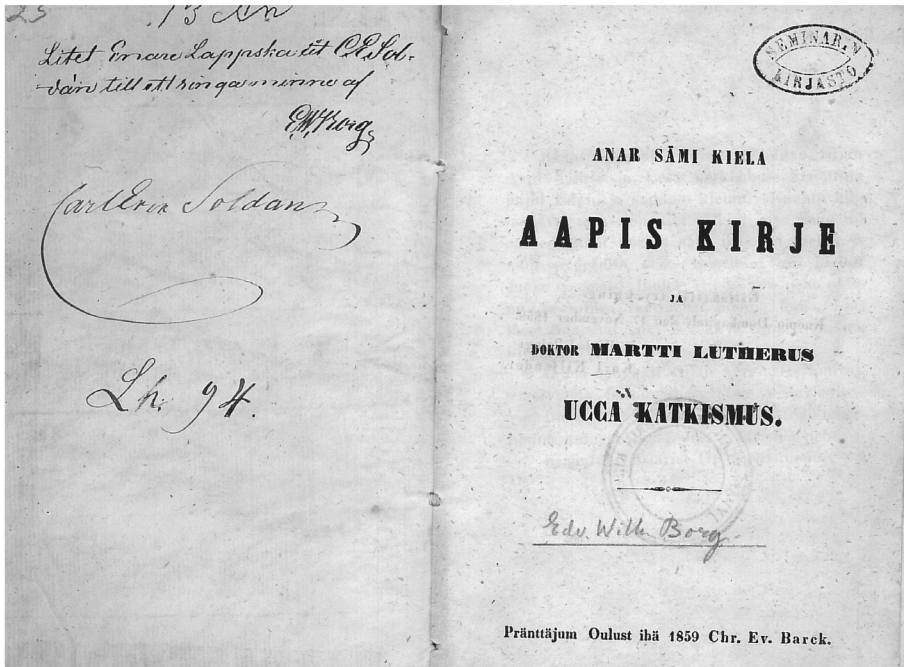 23
13
Litet Enare Lappska åt C.E. Sol-
dán till ett ringa minne af
E.W. Borg
Carl Eric Soldan
Lh. 94.
SEMINARIN
KIRJASTO
ANAR SÄMI KIELA
AAPIS KIRJE
JA
DOKTOR MARTTI LUTHERUS
UCCA KATKISMUS.
Edv. Wilh. Borg.
Pränttäjum Oulust ihä 1859 Chr. Ev. Barck.